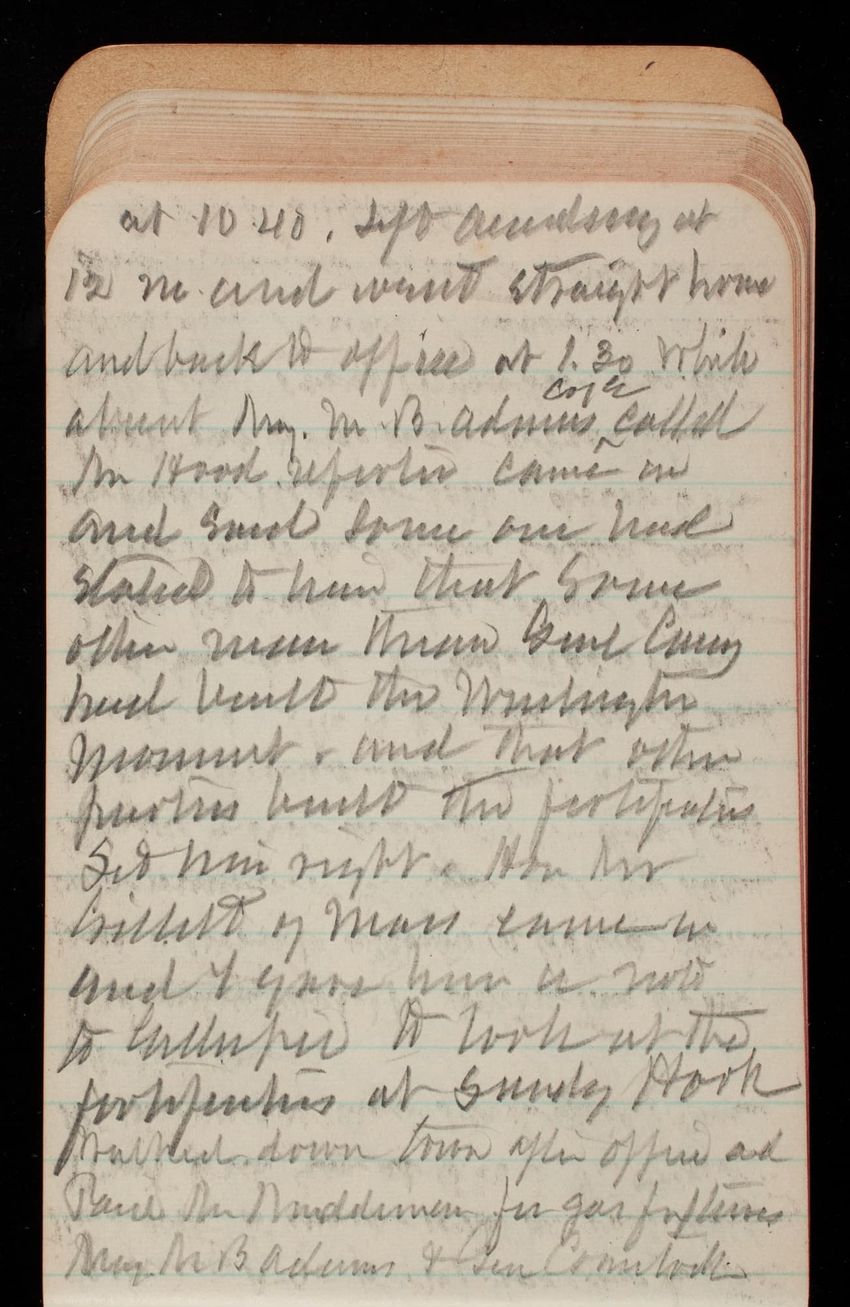 at 10 40. Left Academy at
12 m and went straight home
and back to office at 1.30 While
absent Maj. M. B. Adams, Corps called
Mr Hood reporter came in
and said some one had
stated to him that some
other man than Genl Casey
had built the Washington
Monument. and that other
parties built the fortifications
Set him right. Hon Mr
Gillett of Mass came in
and I gave him a note
to Gillespie to look at the
fortifications at Sandy Hook
Walked down town after office and
Paid Mr Muddiman for gas fixtures
Maj. M B Adams & Gen Comstock